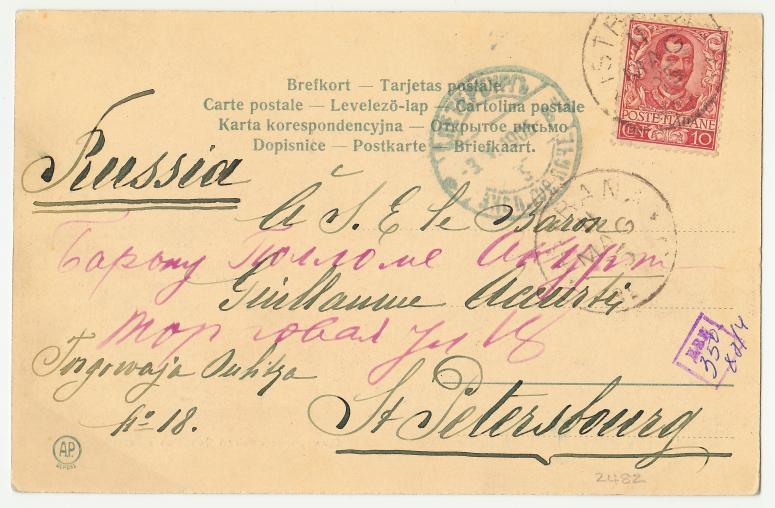 Brefkort — Tarjetas postale
Carte postale — Levelezõ-lap — Cartolina postale
Karta korespondencyjna — Открытое письмо
Dopisnice — Postkarte — Briefkaart.
POSTE ITALIANE
CEN. 10
Russia
À S. E. le Baron
Барону Гилломе Акурти
Guillaume Accurti
Торговая ул 18
Torgowaja Oulitza
No 18.
St Petersbourg
358
A.P.
2482